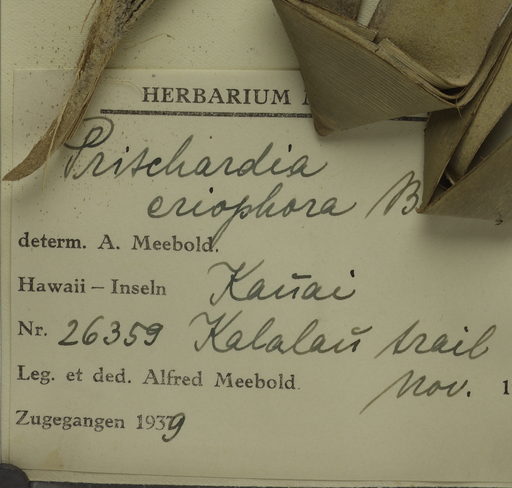 HERBARIUM
Pritschardia
eriophora B
determ. A. Meebold.
Hawaii – Inseln Kaūai
Nr. 26359 Kalalaū trail
Leg. et ded. Alfred Meebold. Nov. 1
Zugegangen 1939